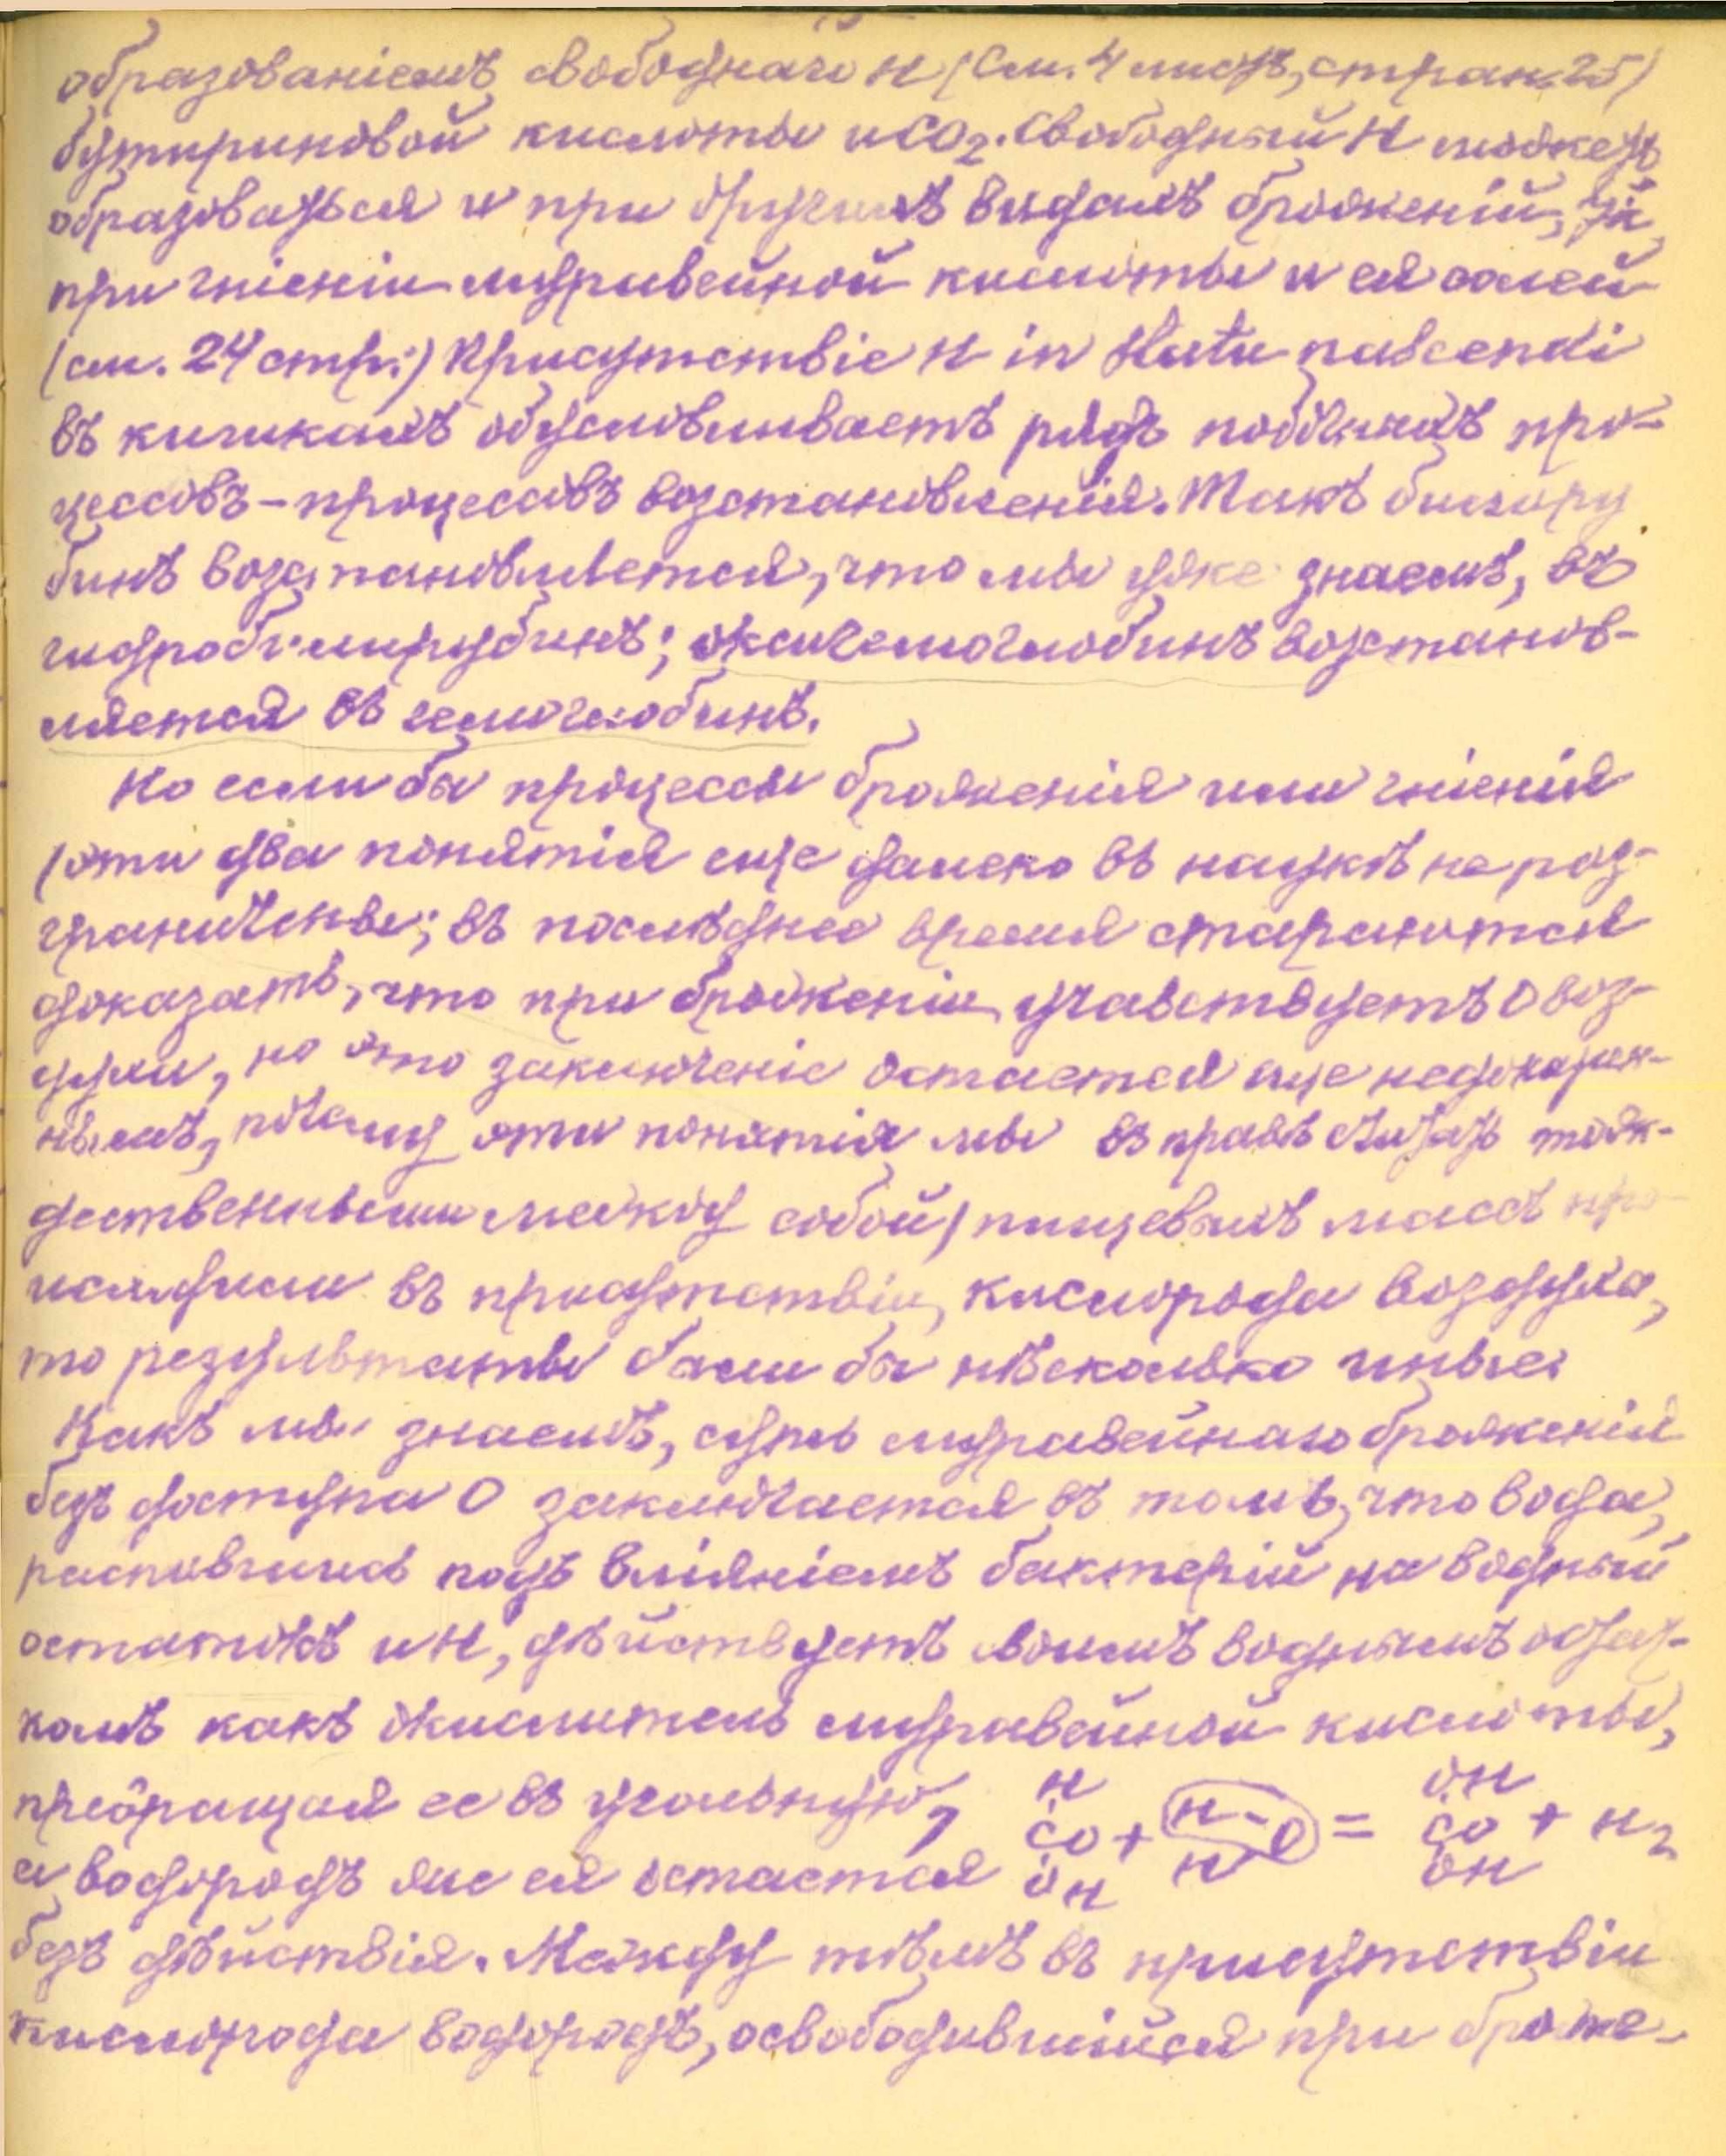 образованіемъ свободнаго H (См. 4 листъ, стран. 25)
бутириновой кислоты и CO₂. Свободный H можетъ
образоваться и при другихъ видахъ броженій,
при гніеніи муравейной кислоты и ея солей
(см. 24 стр.) Присутствіе H in statu nascendi
въ кишкахъ обусловливаетъ рядъ побочныхъ про-
цессовъ – процессовъ возстановленія. Такъ билиру
бинъ возстановляется, что мы уже знаемъ, въ
гидробилирубинъ; оксигемоглобинъ возстанов-
ляется въ гемоглобинъ.
Но если бы процессы броженія или гніенія
(эти два понятія еще далеко въ наукѣ не раз-
граничены; въ послѣднее время стараются
доказать, что при броженіи участвуетъ O воз-
духа, но это заключеніе остается еще недоказан-
нымъ, почему эти понятія мы въ правѣ считать тож-
дественными между собой) пищевыхъ массъ про-
исходили въ присутствіи кислорода воздуха,
то результаты были бы нѣсколько иные.
Какъ мы знаемъ, суть муравейнаго броженія
безъ доступа O заключается въ томъ, что вода,
распавшись подъ вліяніемъ бактерій на водный
остатокъ и H, дѣйствуетъ своимъ воднымъ остат-
комъ какъ окислитель муравейной кислоты,
преобращая ее въ угольную,
H OH
CO + H–O = CO + H₂
OH H OH
а водородъ же ея остается
безъ дѣйствія. Между тѣмъ въ присутствіи
кислорода водородъ, освободившійся при броже-